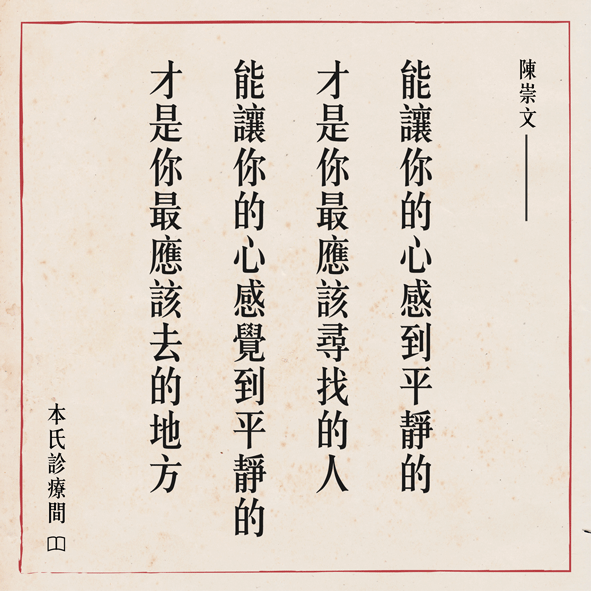 陳崇文——
能讓你的心感到平靜的
才是你最應該尋找的人
能讓你的心感覺到平靜的
才是你最應該去的地方
本氏診療間